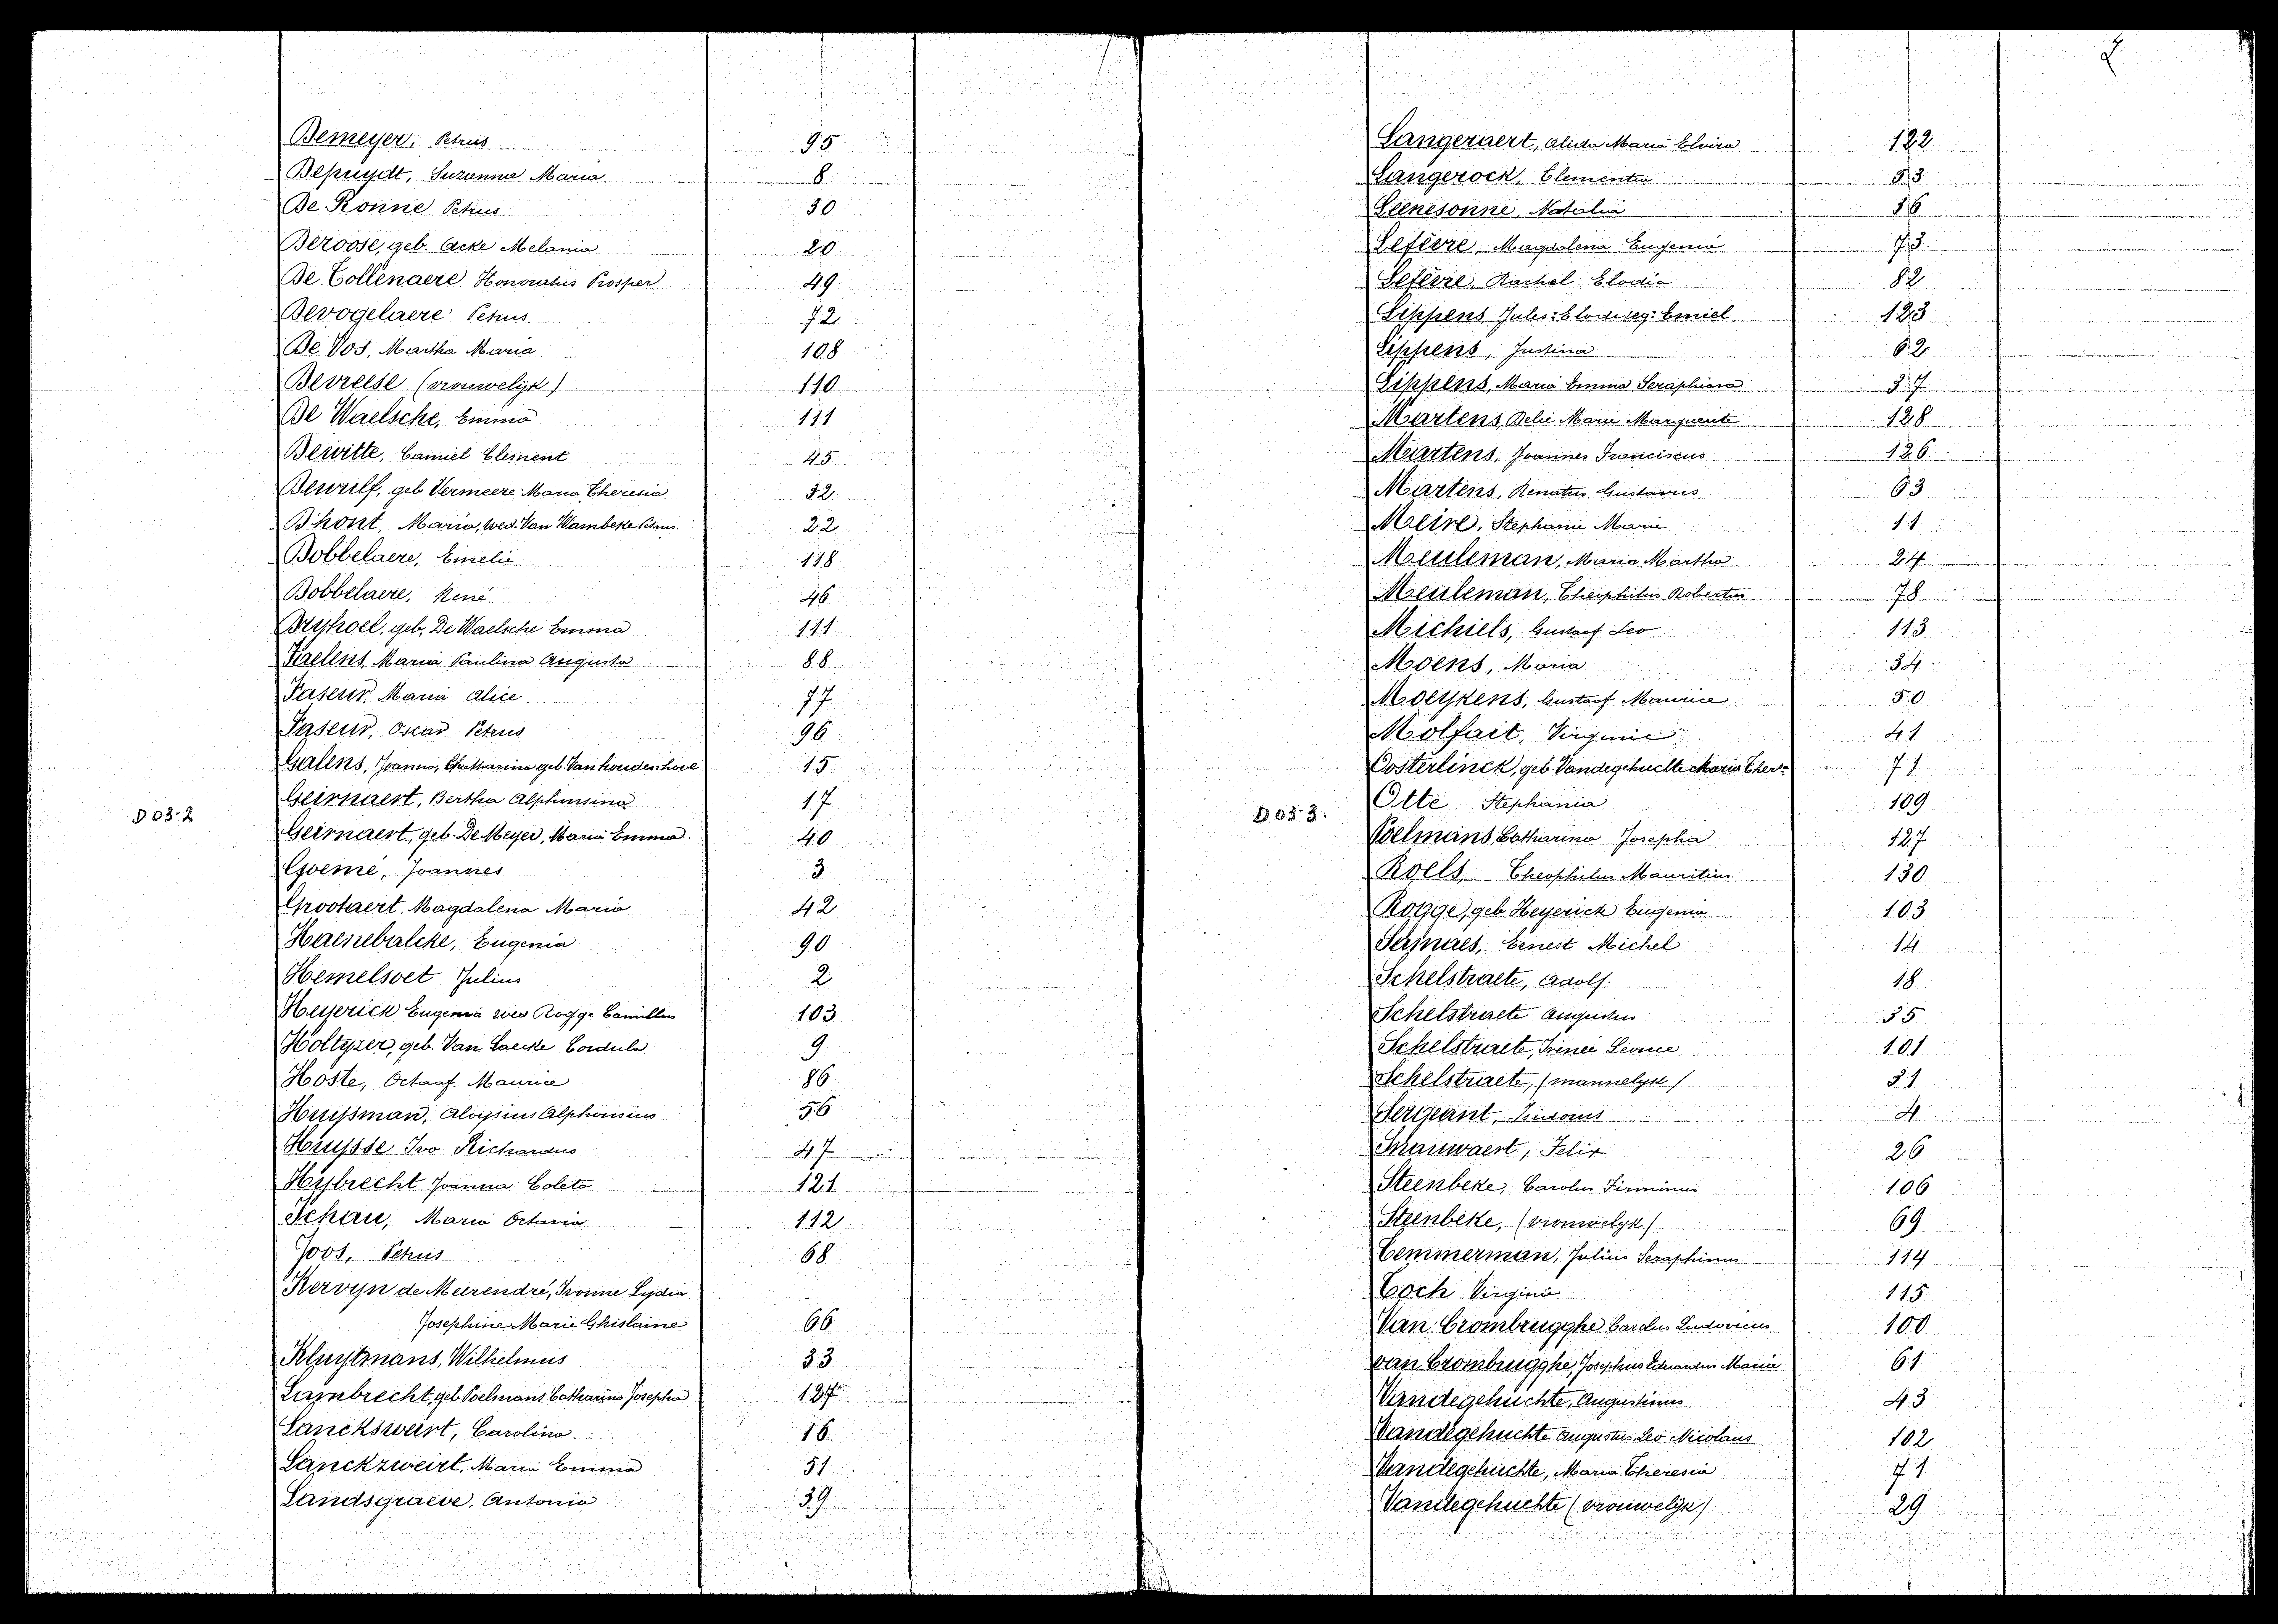 Demeyer, Petrus 95
Depuydt, Suzanna Maria 8
De Ronne Petrus 30
Deroose, geb. Acke Melania 20
De Tollenaere Honoratus Prosper 49
Devogelaere Petrus 72
De Vos, Martha Maria 108
Devreese (vrouwelijk) 110
De Waelsche, Emma 111
Dewitte, Camiel Clement 45
Dewulf, geb Vermeere Maria Theresia 32
D'hont Maria, wed. Van Wambeke Petrus. 22
Dobbelaere, Emelie 118
Dobbelaere, René 46
Dryhoel, geb. De Waelsche Emma 111
Faelens Maria Paulina Augusta 88
Faseur, Maria Alice 77
Faseur, Oscar Petrus 96
Galens, Joanna, Chatharina geb. Van houdenhove 15
Geirnaert, Bertha Alphonsina 17
D03-2
Geirnaert, geb. De Meyer, Maria Emma 40
Goemé, Joannes 3
Grootaert, Magdalena Maria 42
Haenebalcke, Eugenia 90
Hemelsoet Julius 2
Heyerick Eugenia wed Rogge Camillus 103
Holtyzer, geb. Van Laecke Cordula 9
Hoste, Octaaf. Maurice 86
Huysman, Aloysius Alphonsius 56
Huysse Ivo Richardus 47
Hybrecht Joanna Coleta 121
Jchau, Maria Octavia 112
Joos, Petrus 68
Kervyn de Meerendré, Ivonne Lydia
Josephine Marie Ghislaine 66
Kluytmans, Wilhelmus 33
Lambrecht, geb Poelmans Catharina Josepha 127
Lancksweirt, Carolina 16
Lanckzweirt, Maria Emma 51
Landsgraeve, Antonia 39
2
Langeraert, Alida Maria Elvira 122
Langerock, Clementia 53
Leenesonne, Natalia 36
Lefèvre, Magdalena Eugenia 73
Lefèvre, Rachel Elodia 82
Lippens, Jules: Emiel 123
Lippens, Justina 62
Lippens, Maria Emma Seraphina 37
Martens Delie Marie Marguerite 128
Martens, Joannes Franciscus 126
Martens, Renatus Gustavus 63
Meire, Stephanie Marie 11
Meuleman, Maria Martha 24
Meuleman, Theophilus Robertus 78
Michiels, Gustaaf Leo 113
Moens, Maria 34
Moeykens, Gustaaf Maurice 50
Molfait, Virginie 41
Oosterlinck, geb. Vandegehuchte Maria Ther. 71
Otte Stephania 109
D03-3.
Poelmans Catharina Josepha 127
Roels, Theophilus Mauritius 130
Rogge, geb. Heyerick Eugenia 103
Sermaes, Ernest Michel 14
Schelstraete, Adolf. 18
Schelstraete Augustus 35
Schelstraete, Irenée Léonce 101
Schelstraete, (mannelyk) 31
Sergeant, Isidorus 4
Snauwaert, Felix 26
Steenbeke, Carolus Firminus 106
Steenbeke, (vrouwelyk) 69
Temmerman, Julius Seraphinus 114
Toch Virginie 115
Van Crombrugghe Carolus Ludovicus 100
van Crombrugghe, Josephus Eduardus Maria 61
Vandegehuchte, Augustinus 43
Vandegehuchte Augustus Leo Nicolaus 102
Vandegehuchte, Maria Theresia 71
Vandegehuchte (vrouwelijk) 29